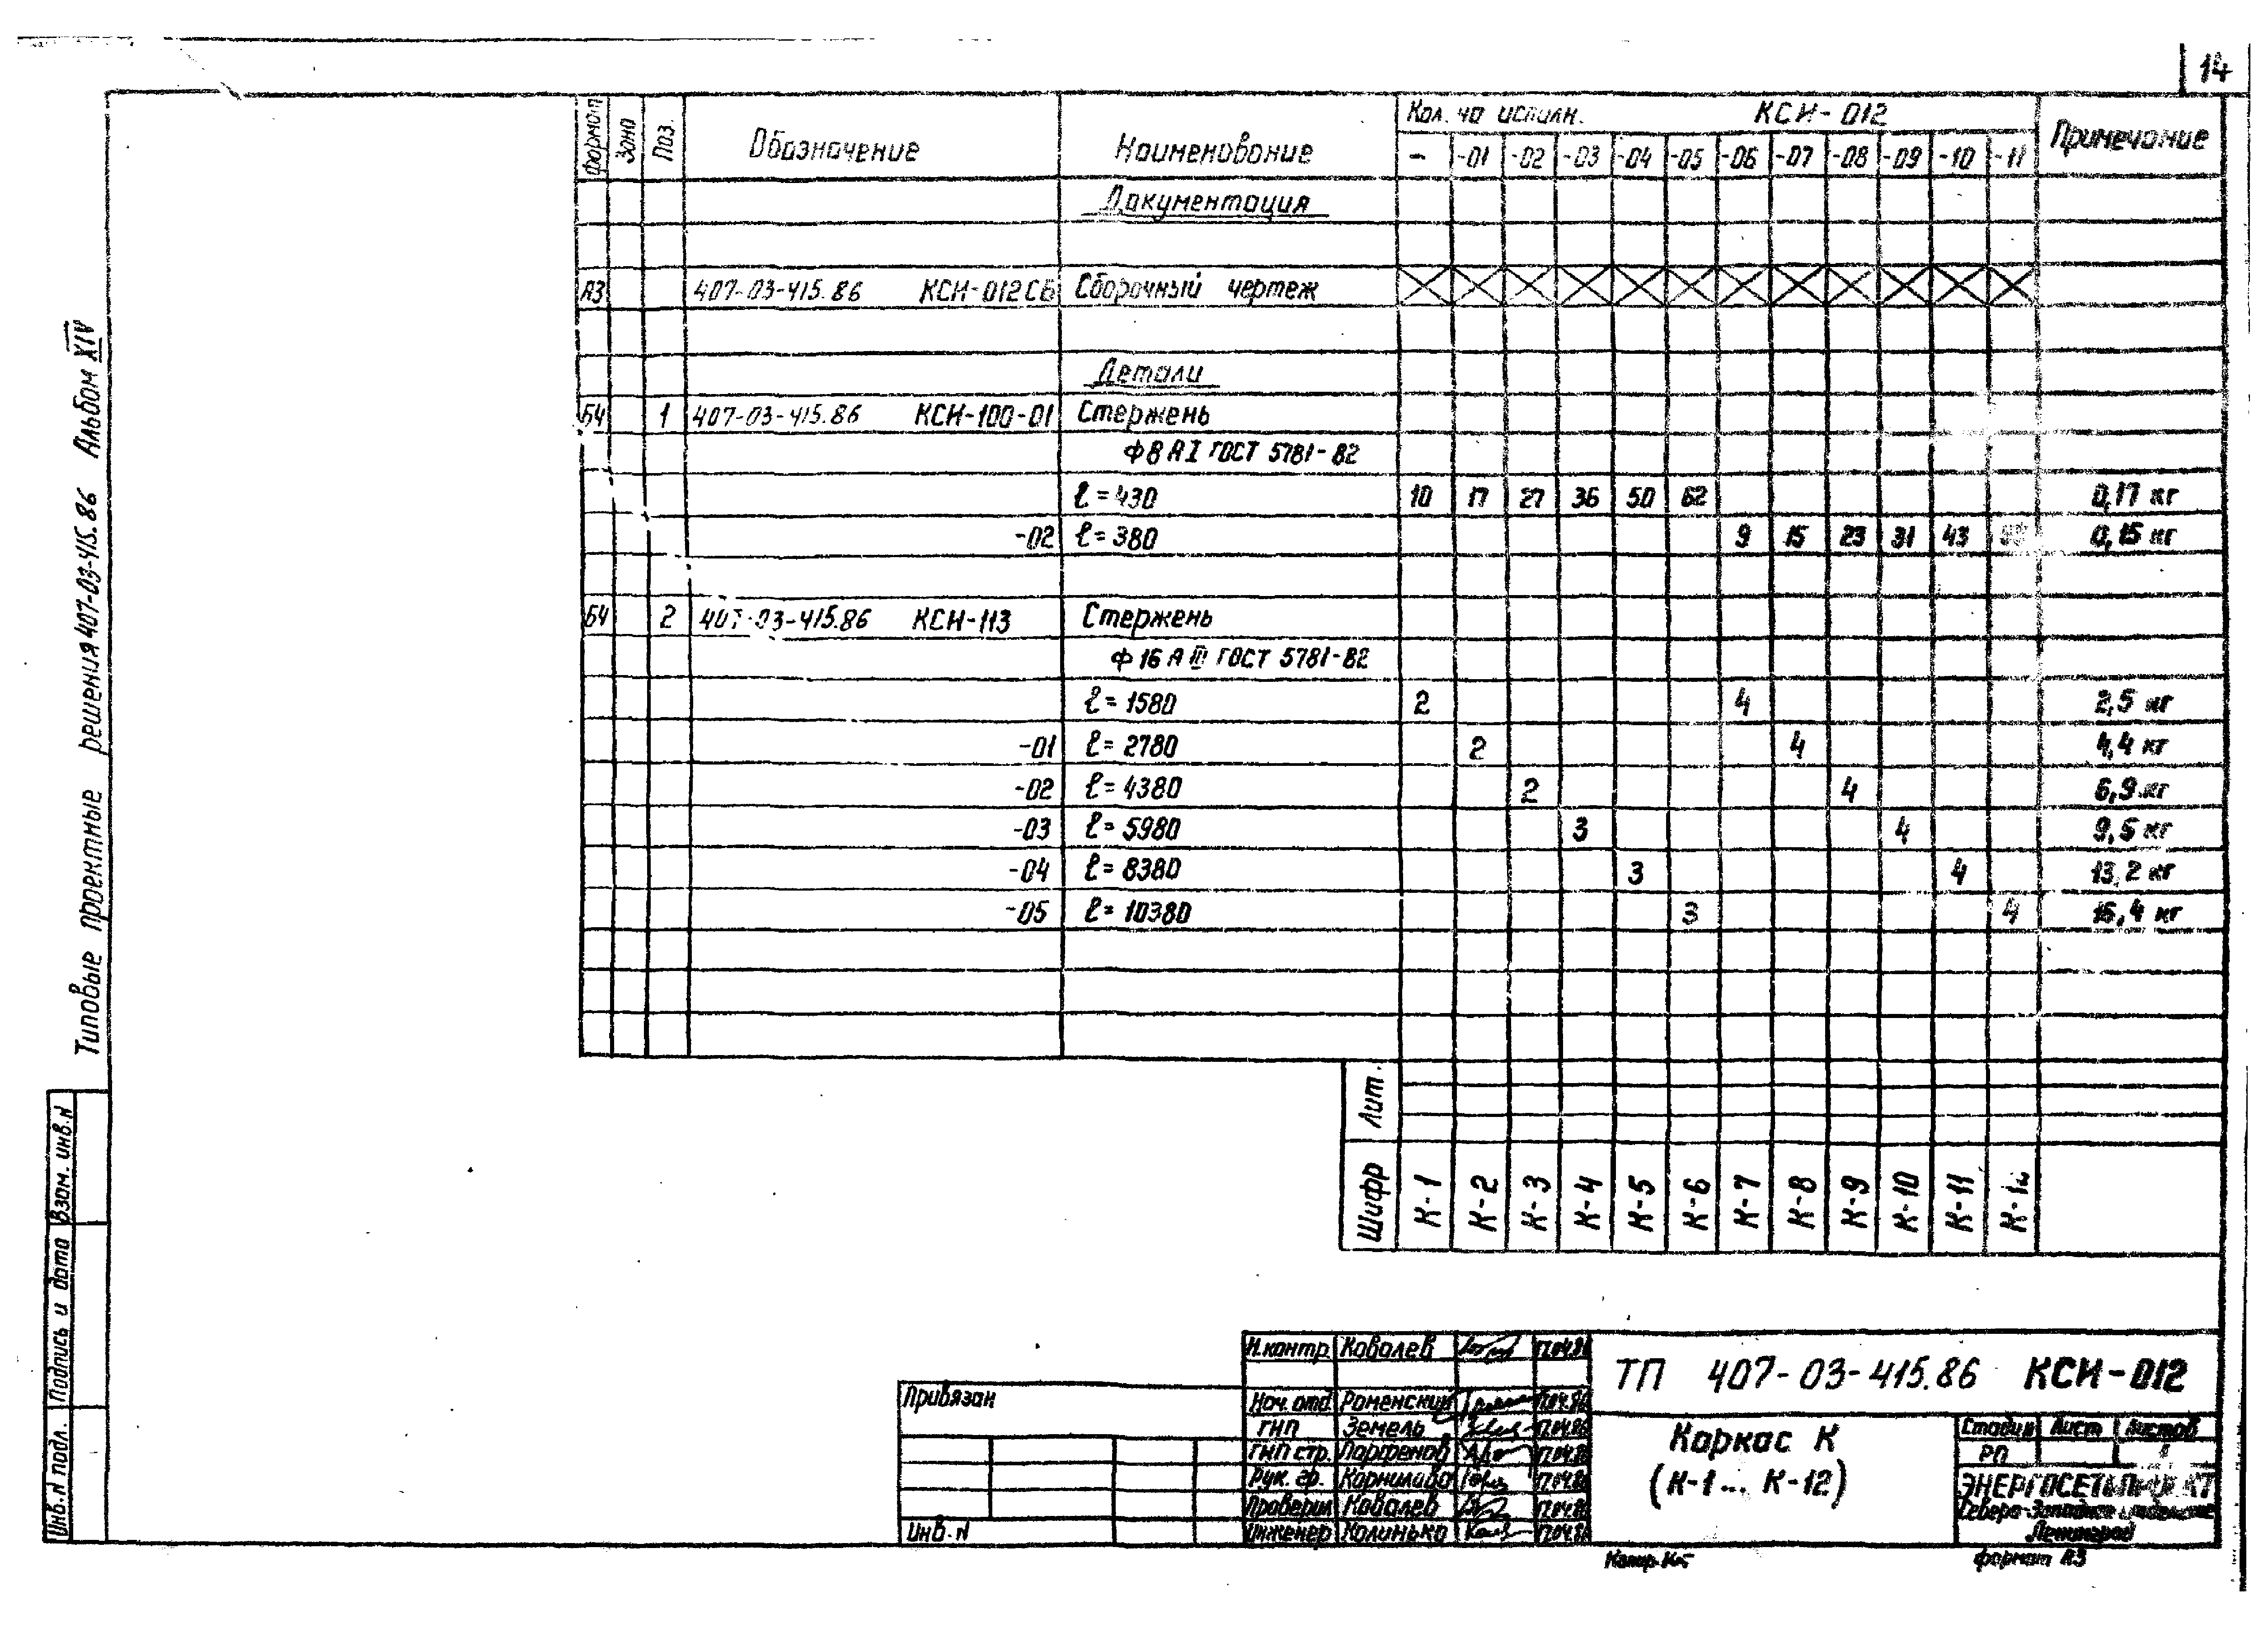 14
Формат Зона Поз. Обозначение Наименование Кол. на исполн. КСИ-012 Примечание
- -01 -02 -03 -04 -05 -06 -07 -08 -09 -10 -11
Документация
А3 407-03-415.86 КСИ-012СБ Сборочный чертеж
Детали
Б4 1 407-03-415.86 КСИ-100-01 Стержень
Ф8 А I ГОСТ 5781-82
ℓ=430 10 17 27 36 50 62 0,17 кг
-02 ℓ=380 9 15 23 31 43 0,15 кг
Б4 2 407-03-415.86 КСИ-113 Стержень
Ф16 А III ГОСТ 5781-82
ℓ=1580 2 4 2,5 кг
-01 ℓ=2780 2 4 4,4 кг
-02 ℓ=4380 2 4 6,9 кг
-03 ℓ=5980 3 4 9,5 кг
-04 ℓ=8380 3 4 13,2 кг
-05 ℓ=10380 3 4 16,4 кг
Лит.
Шифр К-1 К-2 К-3 К-4 К-5 К-6 К-7 К-8 К-9 К-10 К-11 К-12
Типовые проектные решения 407-03-415.86 Альбом XIV
Взам. инв.N
Подпись и дата
Инв.N подл.
Привязан
Инв.N
Н.контр. Ковалев 17.04.86
Нач.отд. Роменский 17.04.86
ГИП Земель 17.04.86
ГИП стр. Парфенов 17.04.86
Рук. гр. Корнилова 17.04.86
Проверил Ковалев 17.04.86
Инженер Калинько 17.04.86
ТП 407-03-415.86 КСИ-012
Каркас К
(К-1... К-12)
Стадия Лист Листов
РП
ЭНЕРГОСЕТЬПРОЕКТ
Северо-Западное отделение
Ленинград
Копир.
формат А3